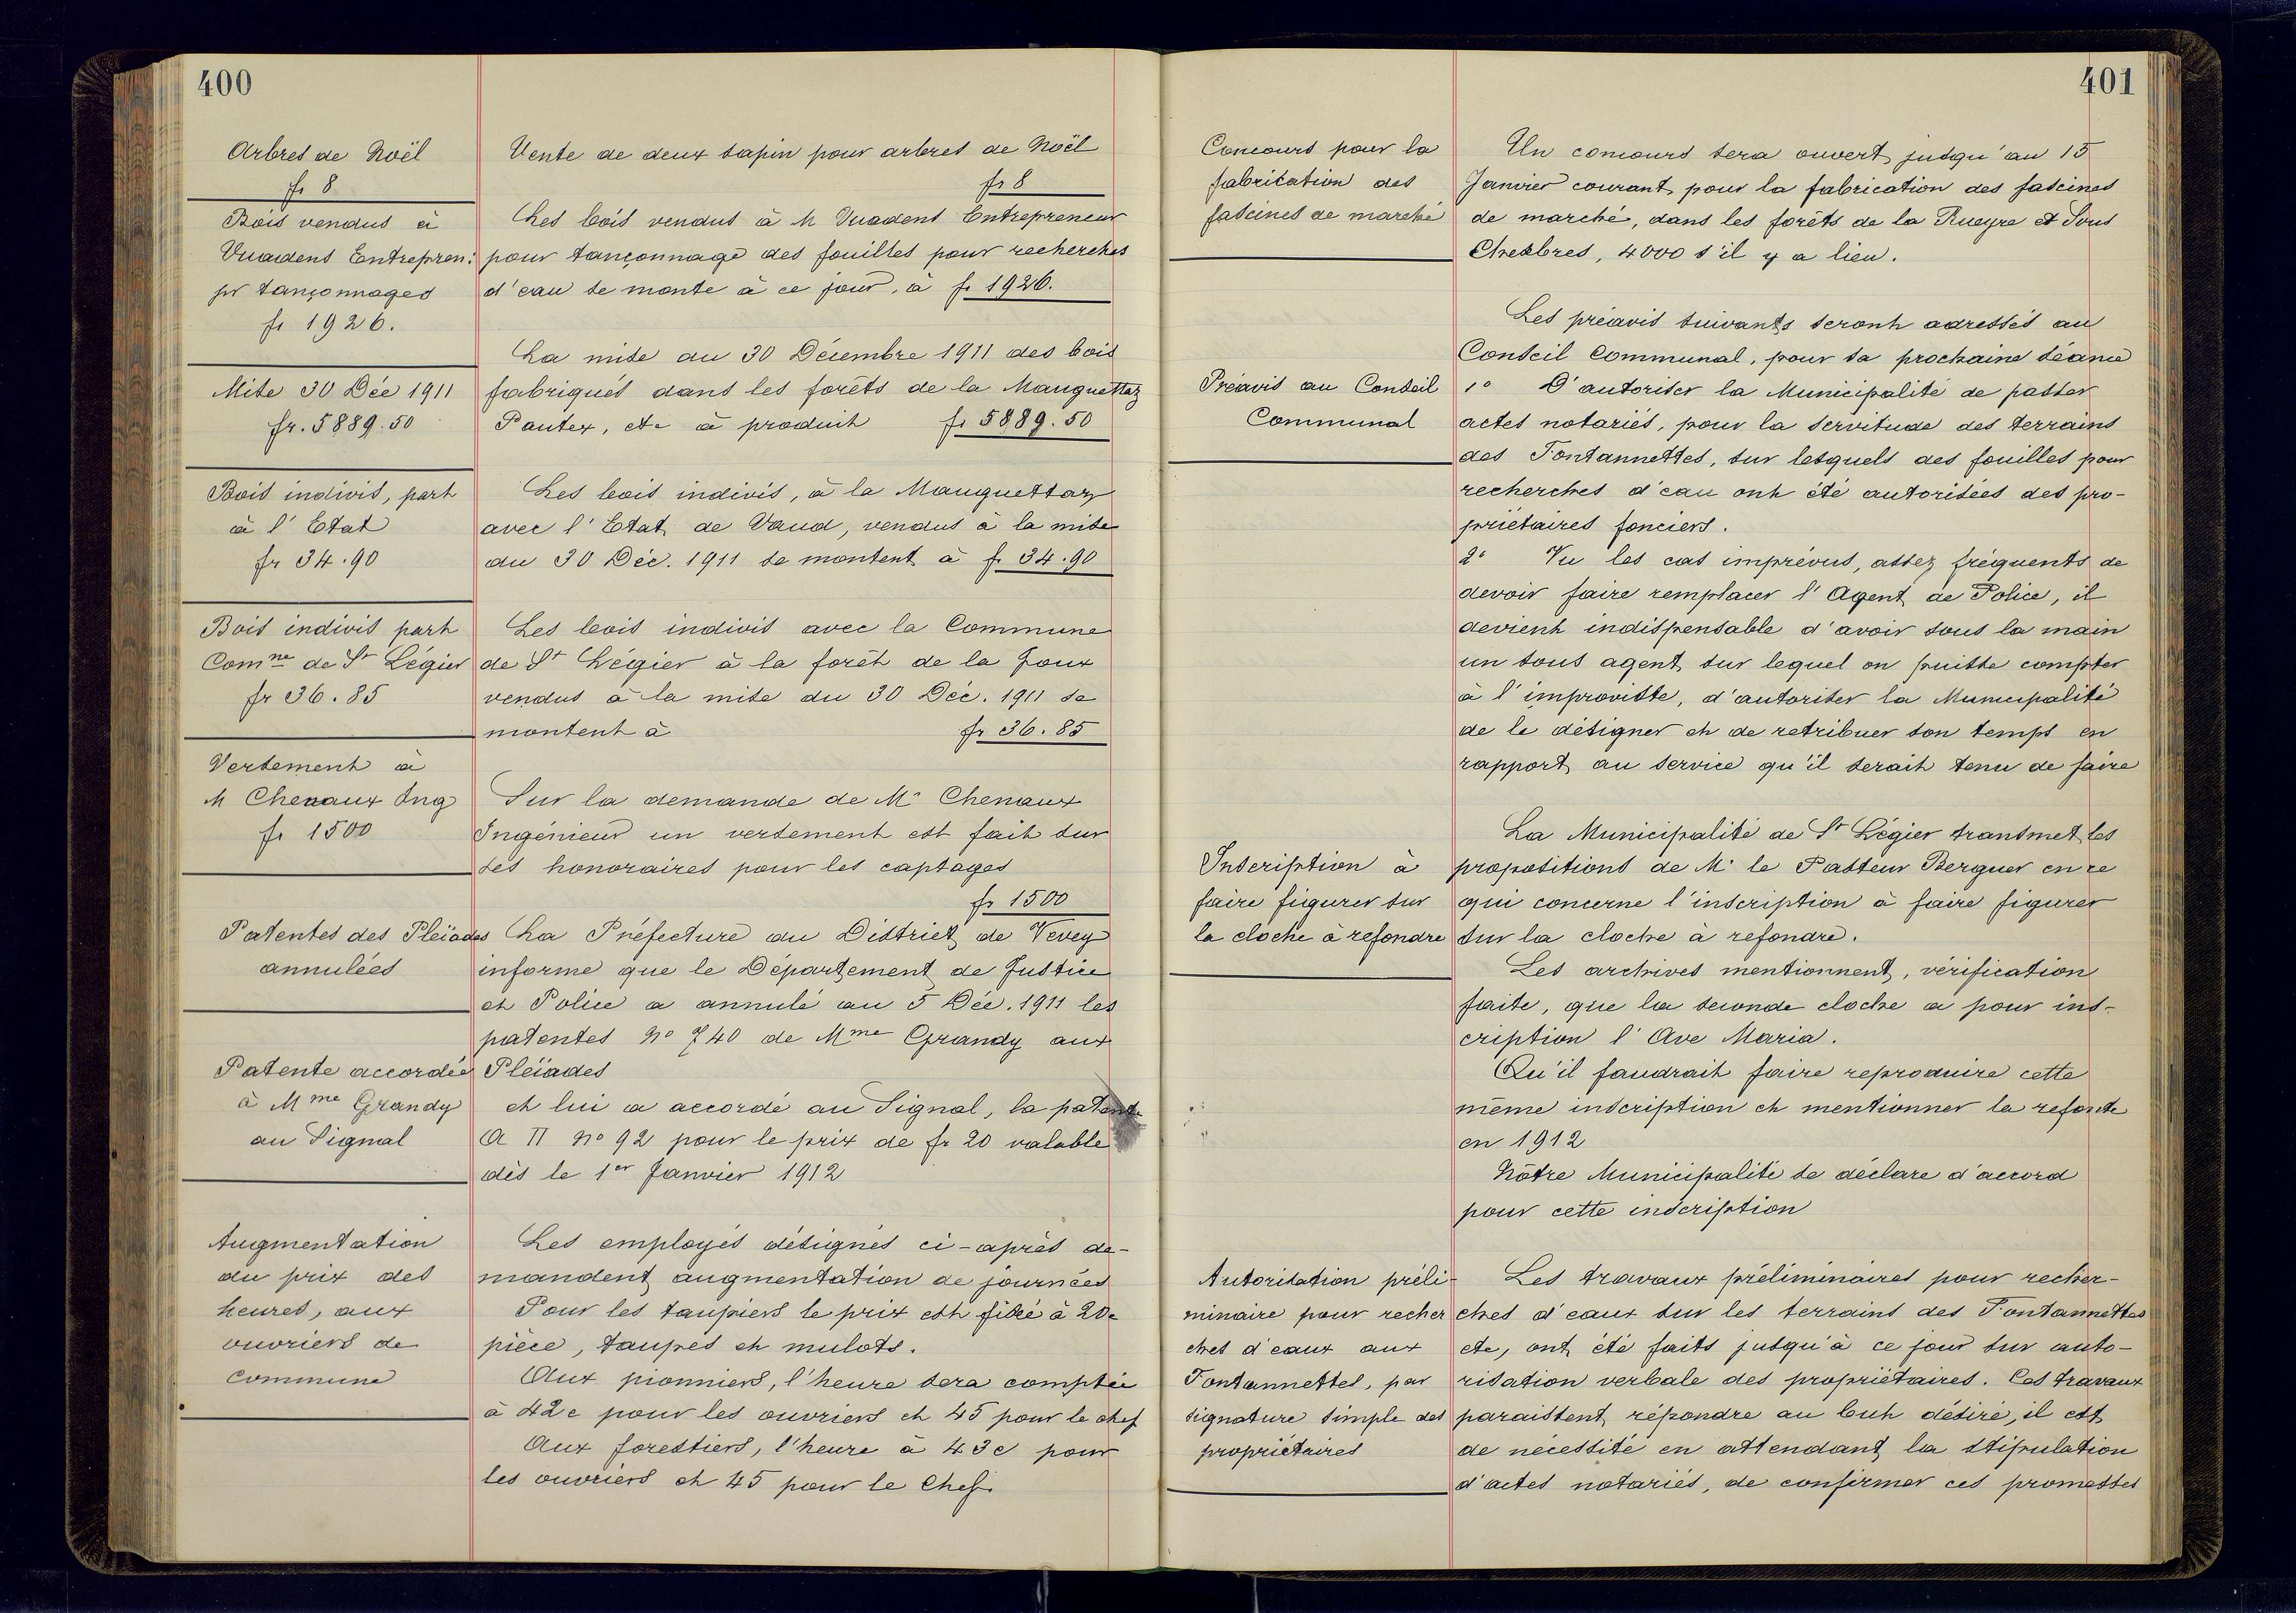 400
Arbres de Noël
fr 8
Vente de deux sapin pour arbres de Noël
fr 8
Bois vendus à
Vuadens Entrepren:
pr tançonnages
fr 1926.
Les bois vendus à M Vuadens Entrepreneur
pour tançonnage des fouilles pour recherches
d'eau se monte à ce jour, à fr 1926.
Mise 30 Déc 1911
fr. 5889.50
La mise du 30 Décembre 1911 des bois
fabriqués dans les forêts de la Manguettaz
Pautex, etc à produit fr 5889.50
Bois indivis, part
à l'Etat
fr 34.90
Les bois indivis, à la Manguettaz
avec l'Etat de Vaud, vendus à la mise
du 30 Déc. 1911 se montent à fr 34.90
Bois indivis part
Comne de St Légier
fr 36.85
Les bois indivis avec la Commune
de St Légier à la forêt de la Joux
vendus à la mise du 30 Déc. 1911 se
montent à fr 36.85
Versement à
M Chenaux Ing
fr 1500
Sur la demande de Mr Chenaux
Ingénieur un versement est fait sur
ses honoraires pour les captages
fr 1500
Patentes des Pleïades
annulées
La Préfecture du District de Vevey
informe que le Département de Justice
et Police a annulé au 5 Déc. 1911 les
patentes No 740 de Mme Grandy aux
Pleïades
Patente accordée
à Mme Grandy
au Signal
et lui a accordé au Signal, la patente
A II No 92 pour le prix de fr 20 valable
dès le 1er Janvier 1912
Augmentation
du prix des
heures, aux
ouvriers de
commune
Les employés désignés ci-après de-
mandent augmentation de journées
Pour les taupiers le prix est fixé à 20c
pièce, taupes et mulots.
Aux pionniers, l'heure sera comptée
à 42c pour les ouvriers et 45 pour le chef
Aux forestiers, l'heure à 43c pour
les ouvriers et 45 pour le Chef.
401
Concours pour la
fabrication des
fascines de marché
Un concours sera ouvert jusqu'au 15
Janvier courant pour la fabrication des fascines
de marché, dans les forêts de la Rueyre et Sous
Chexbres, 4000 s'il y a lieu.
Préavis au Conseil
Communal
Les préavis suivants seront adressés au
Conseil Communal, pour sa prochaine séance
1o D'autoriser la Municipalité de passer
actes notariés, pour la servitude des terrains
des Fontannettes, sur lesquels des fouilles pour
recherches d'eau ont été autorisées des pro-
priétaires fonciers.
2o Vu les cas imprévus, assez fréquents de
devoir faire remplacer l'Agent de Police, il
devient indispensable d'avoir sous la main
un sous agent sur lequel on puisse compter
à l'improviste, d'autoriser la Municipalité
de le désigner et de retribuer son temps en
rapport au service qu'il serait tenu de faire
Inscription à
faire figurer sur
la cloche à refondre
La Municipalité de St Légier transmet les
propositions de Mr le Pasteur Berguer en ce
qui concerne l'inscription à faire figurer
sur la cloche à refondre.
Les archives mentionnent, vérification
faite, que la seconde cloche a pour ins-
cription l'Ave Maria.
Qu'il faudrait faire reproduire cette
même inscription et mentionner la refonte
en 1912
Nôtre Municipalité se déclare d'accord
pour cette inscription
Autorisation préli-
minaire pour recher
ches d'eaux aux
Fontannettes, par
signature simple des
propriétaires
Les travaux préliminaires pour recher-
ches d'eaux sur les terrains des Fontannettes
etc, ont été faits jusqu'à ce jour sur auto-
risation verbale des propriétaires. Ces travaux
paraissent répondre au but désiré, il est
de nécessité en attendant la stipulation
d'actes notariés, de confirmer ces promesses